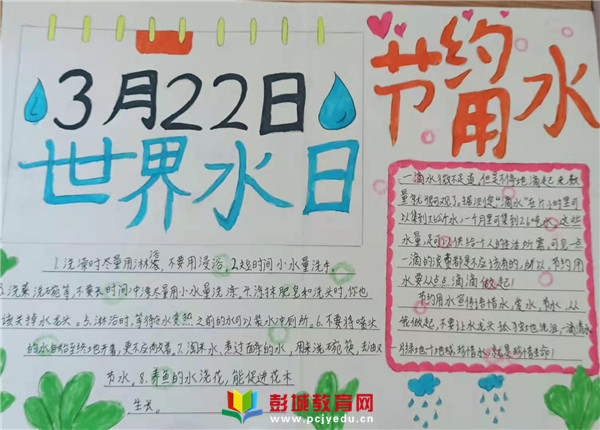 3月22日
世界水日
节约
用水
1.洗澡时尽量用淋浴,不要用浸浴。2.短时间小水量洗手。
3.洗菜、洗碗等,不要长时间冲洗尽量用小水量洗涤。4.涂抹肥皂和洗头时,你也
该关掉水龙头。5.淋浴时,等待在水变热之前的水可以装水冲厕所。6.不要将喷水
7.淘米水、煮过面条的水,用来洗碗筷,去油又
节水。8.养鱼的水浇花,能促进花木
生长。
一滴水微不足道,但是不停地滴起来,数
量就很可观了。据测定"滴水"在1小时里可
以集到 一个月里可集到2.6吨水。这些
水量,足可以供给一个人的生活所需。可见,一点
一滴的浪费都是不应该有的。所以,节约用
水要从点点滴滴做起!
节约用水 惜水、爱水、节水,从
我做起,不要让水龙头孤独地流泪
珍惜水 就是珍惜生命!
彭城教育网
www.pcjyedu.cn